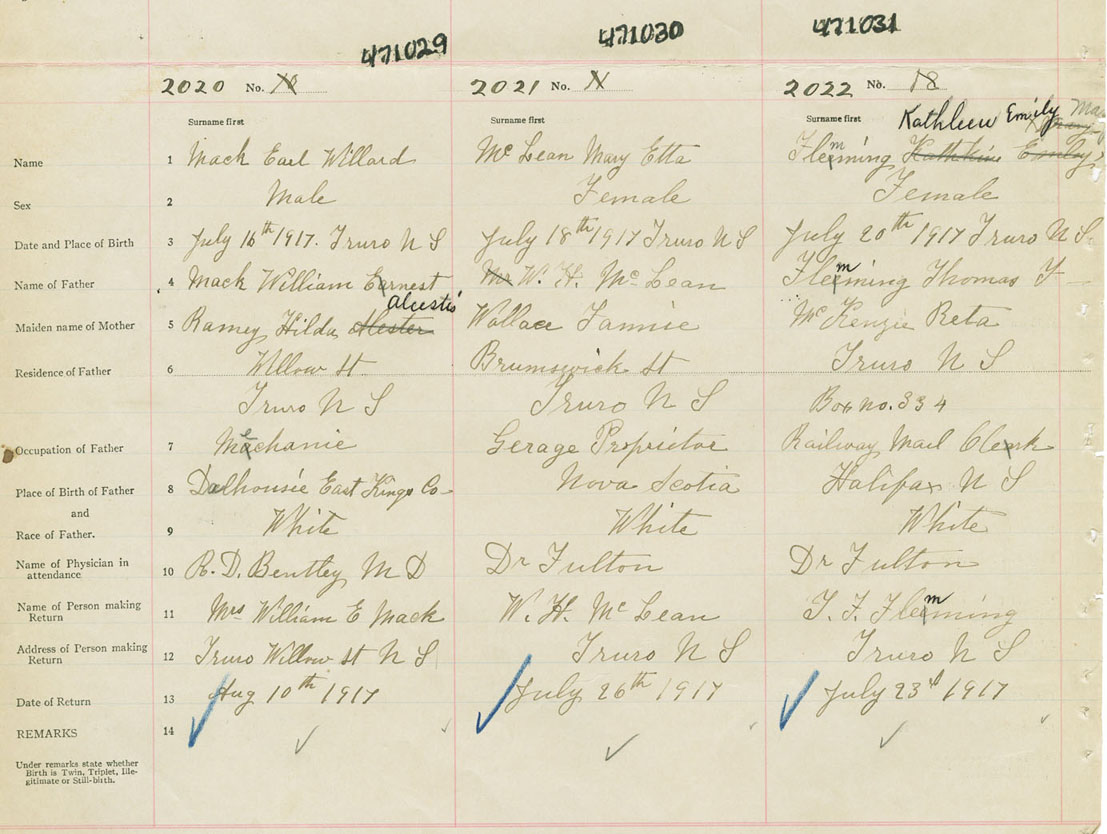 471029 471030 471031
2020 No. 2021 No. 2022 No. 18
Surname first Surname first Surname first Kathleen Emily
Name 1 Mack Earl Willard Mc Lean Mary Etta Flemming
Sex 2 Male Female Female
Date and Place of Birth 3 July 16th 1917. Truro N S July 18th 1917 Truro N S July 20th 1917 Truro N S.
Name of Father 4 Mack William Ernest Mr W. H. Mc Lean Flemming Thomas F
Alcestis
Maiden name of Mother 5 Ramey Hilda Alester Wallace Fannie Mc Kenzie Reta
Residence of Father 6 Willow St Brumswick St Truro N S
Truro N S Truro N S Box no. 334
Occupation of Father 7 Mechanic Gerage Propritor Railway Mail Clerk
Place of Birth of Father 8 Dalhousie East Kings Co Nova Scotia Halifax N S
and
Race of Father. 9 White White White
Name of Physician in
attendance 10 R. D. Bentley M D Dr Fulton Dr Fulton
Name of Person making
Return 11 Mrs William E Mack W. H. Mc Lean T. F. Flemming
Address of Person making
Return 12 Truro Willow St N S Truro N S Truro N S
Date of Return 13 Aug 10th 1917 July 26th 1917 July 23rd 1917
REMARKS 14
Under remarks state whether
Birth is Twin, Triplet, Ille-
gitimate or Still-birth.